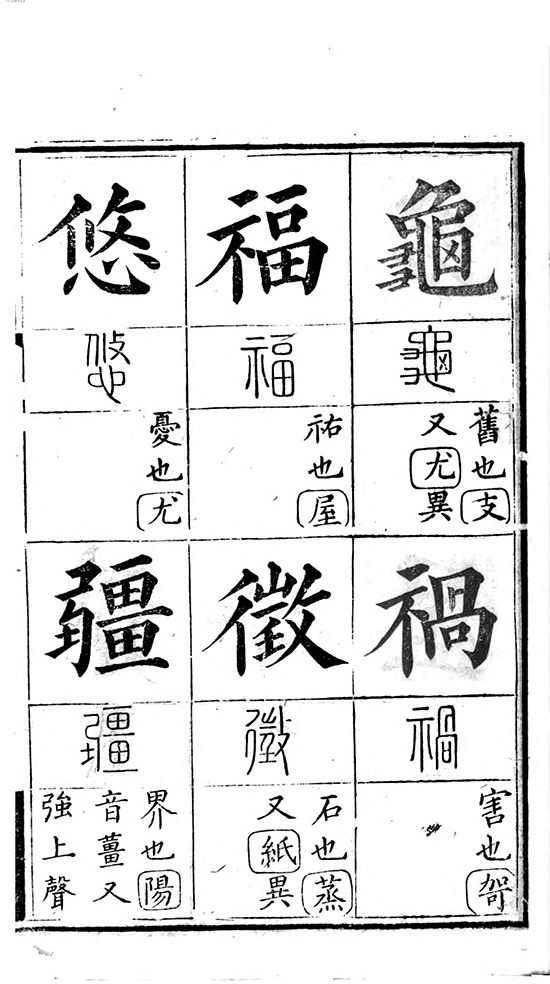 龜
龜
舊也支
又尤異
禍
禍
害也哿
福
福
祐也屋
徵
徵
石也蒸
又紙異
悠
悠
憂也尤
疆
疆
界也陽
音薑又
強上聲